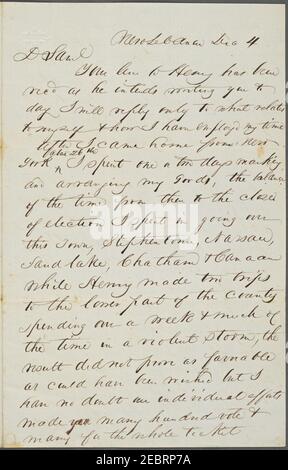 New Lebanon Dec 4
D Saml
Your line to Henry has been
recd as he intends writing you to
day I will reply only to what relates
to myself & how I have employd my time
After I came home from New
York I spent one or ten days marking
and arranging my Goods, the balance
of the time from then to the close
of election I spent in going over
this Town, Stephentown, Nassau,
Sandlake, Chatham & Canaan
While Henry made two trips
to the lower part of the County
spending over a week & much of
the time in a violent Storm, the
result did not prove as favorable
as could have been wished but I
have no doubt our individual efforts
made you many hundred vote &
many for the whole ticket
alamy
Image ID: 2EBRP7A
www.alamy.com